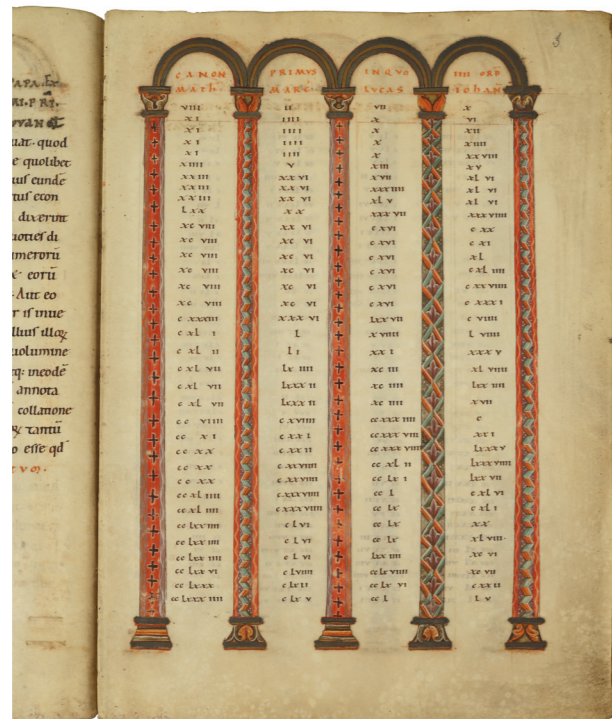 APA. Ex
RI. PRI.
VVANGL
uat. quod
e quolibet
ius eunde
tus econ
dixerint
uoties di
umerorū
x eorū
Aut eo
r is inue
llius illoq;
uolumine
q: ineode
annota
collatione
& tantū
o esse qd
CANON PRIMVS INQVO IIII ORD
MATH. MARC. LVCAS IOHAN
VIII II VII X
XI IIII X VI
XI IIII X XII
XI IIII X XIIII
XI IIII X XXVIII
XIIII V XIII XV
XXIII XXVI XVII XLVI
XXIII XXVI XXXIIII XLVI
XXIII XXVI XLV XLVI
LXX XX XXXVII XXXVIII
XCVIII XXVI CXVI CXX
XCVIII XXVI CXVI CXI
XCVIII XCVI CXVI XL
XCVIII XCVI CXVI CXLIIII
XCVIII XCVI CXVI CXXVIIII
XCVIII XCVI CXVI CXXXI
CXXXIII XXXVI LXXVII CVIIII
CXLI L XVIIII LVIIII
CXLII LI XXI XXXV
CXLVII LXIIII XCIII XLVIIII
CXLVII LXXXII XCIIII LXXIIII
CXLVII LXXXII XCIIII XVII
CCVIIII CXVIIII CCXXXIIII C
CCXI CXXI CCXXXVIII XXI
CCXX CXXII CCXXXVIIII LXXXV
CCXX CXXVIIII CCXLII LXXXVIII
CCXX CXXVIIII CCLXI LXXVII
CCXLIIII CXXXVIIII CCL CXLVI
CCXLIIII CXXXVIIII CCL CXLI
CCLXXIIII CLVI CCLX XX
CCLXXIIII CLVI CCLX XLVIII
CCLXXIIII CLVI LXXIIII XCVI
CCLXXVI CLVIII LXXIIII XCVIII
CCLXXX CLXII CCLXVIIII CXXII
CCLXXXIIII CLXV CCLXVI LV